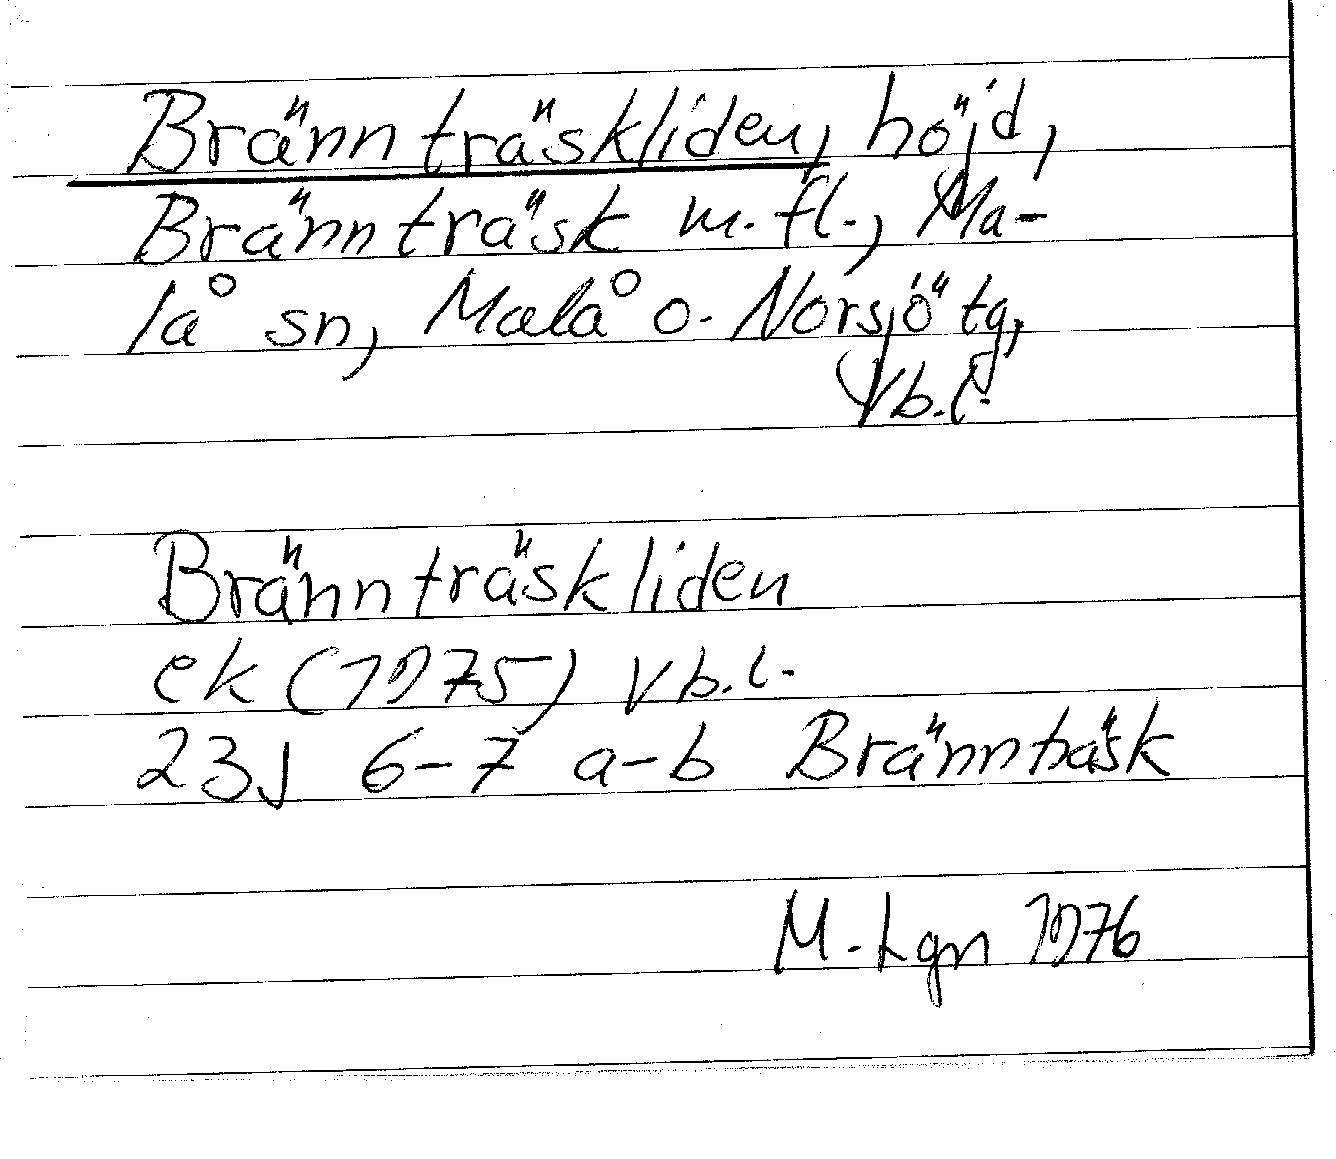 Brännträskliden, höjd,
Brännträsk m.fl., Ma-
lå sn, Malå o. Norsjö tg,
Vb.l.
Brännträskliden
ek (1975) Vb.l.
23J 6-7 a-b Brännträsk
M. Lgn 1976